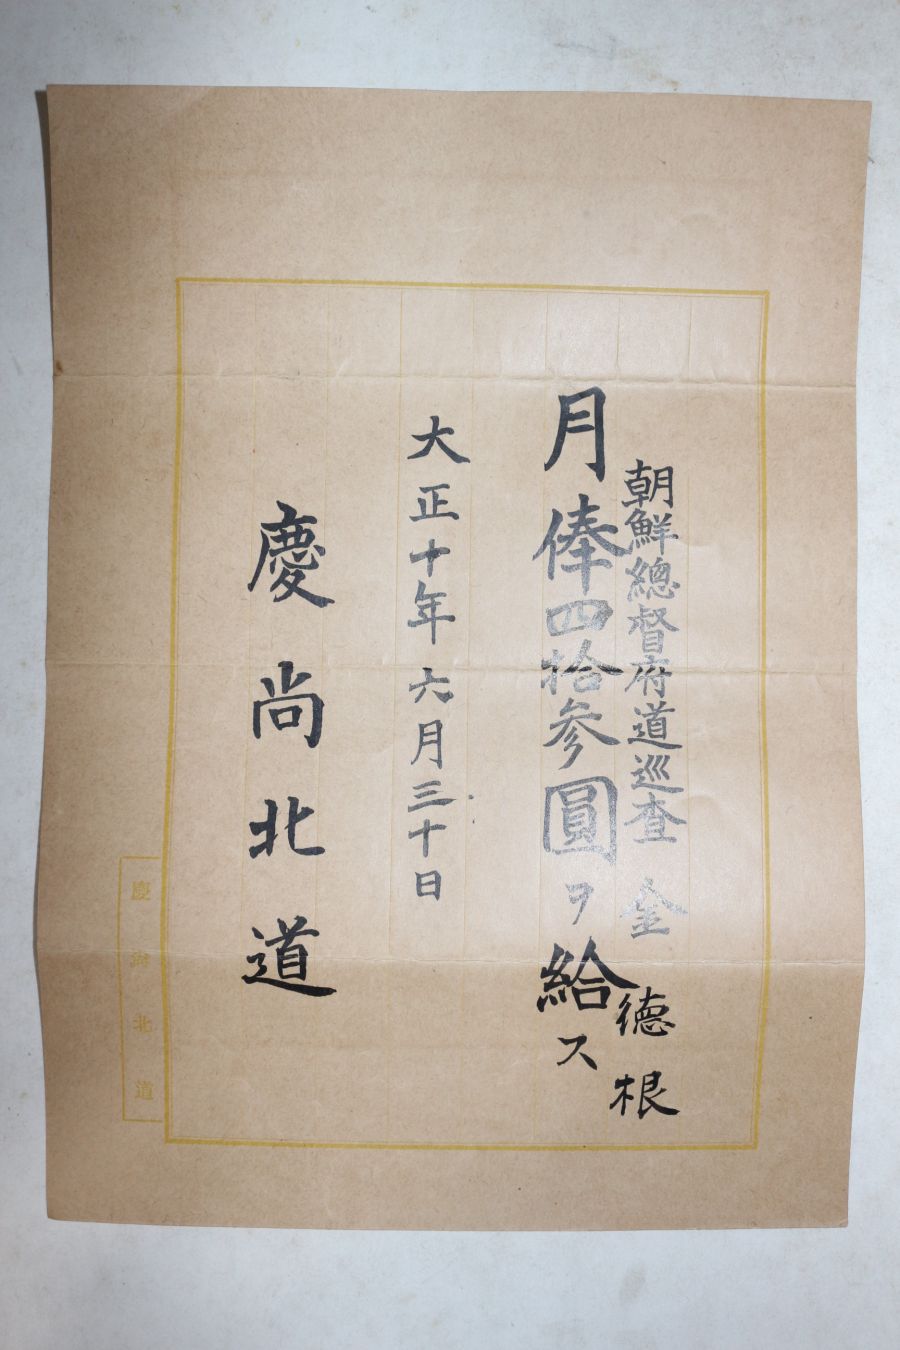 朝鮮總督府道巡査 金德根
月俸四拾参圓ヲ給ス
大正十年六月三十日
慶尚北道
慶尚北道